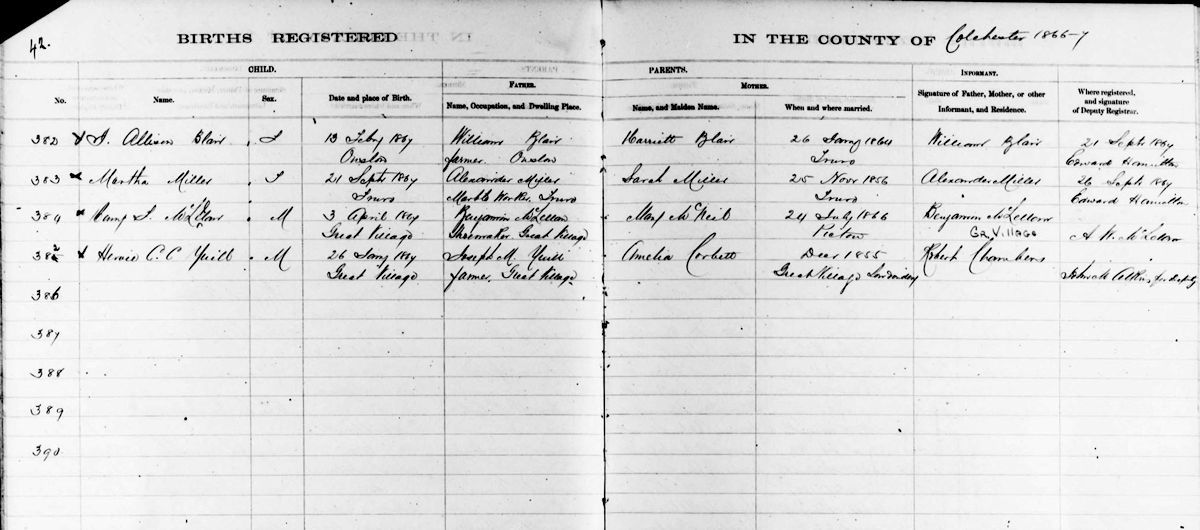 42.
BIRTHS REGISTERED IN THE COUNTY OF Colchester 1866-7
CHILD. PARENTS.
FATHER. MOTHER. INFORMANT.
No. Name. Sex. Date and place of Birth. Name, Occupation, and Dwelling Place. Name, and Maiden Name. When and where married. Signature of Father, Mother, or other Informant, and Residence. Where registered, and signature of Deputy Registrar.
382 Allison Blair F 13 Feby 1867 William Blair Harriett Blair 26 Jany 1864 William Blair 21 Sept 1867
Onslow farmer Onslow Truro Edward Hamilton
383 Martha Miller F 21 Sept 1867 Alexander Miller Sarah Miller 25 Novr 1856 Alexander Miller 26 Sept 1867
Truro Marble Worker Truro Truro Edward Hamilton
384 McLellan M 3 April 1867 Benjamin McLellan Mary McNeil 24 July 1866 Benjamin McLellan
Great Village Shoemaker Great Village Pictou Gr. Village A. W. McLellan
385 C. C. Yuill M 26 Jany 1867 Joseph M. Yuill Amelia Corbett Decr 1855 Robert Chambers
Great Village farmer, Great Village Great Village Londonderry for deputy
386
387
388
389
390